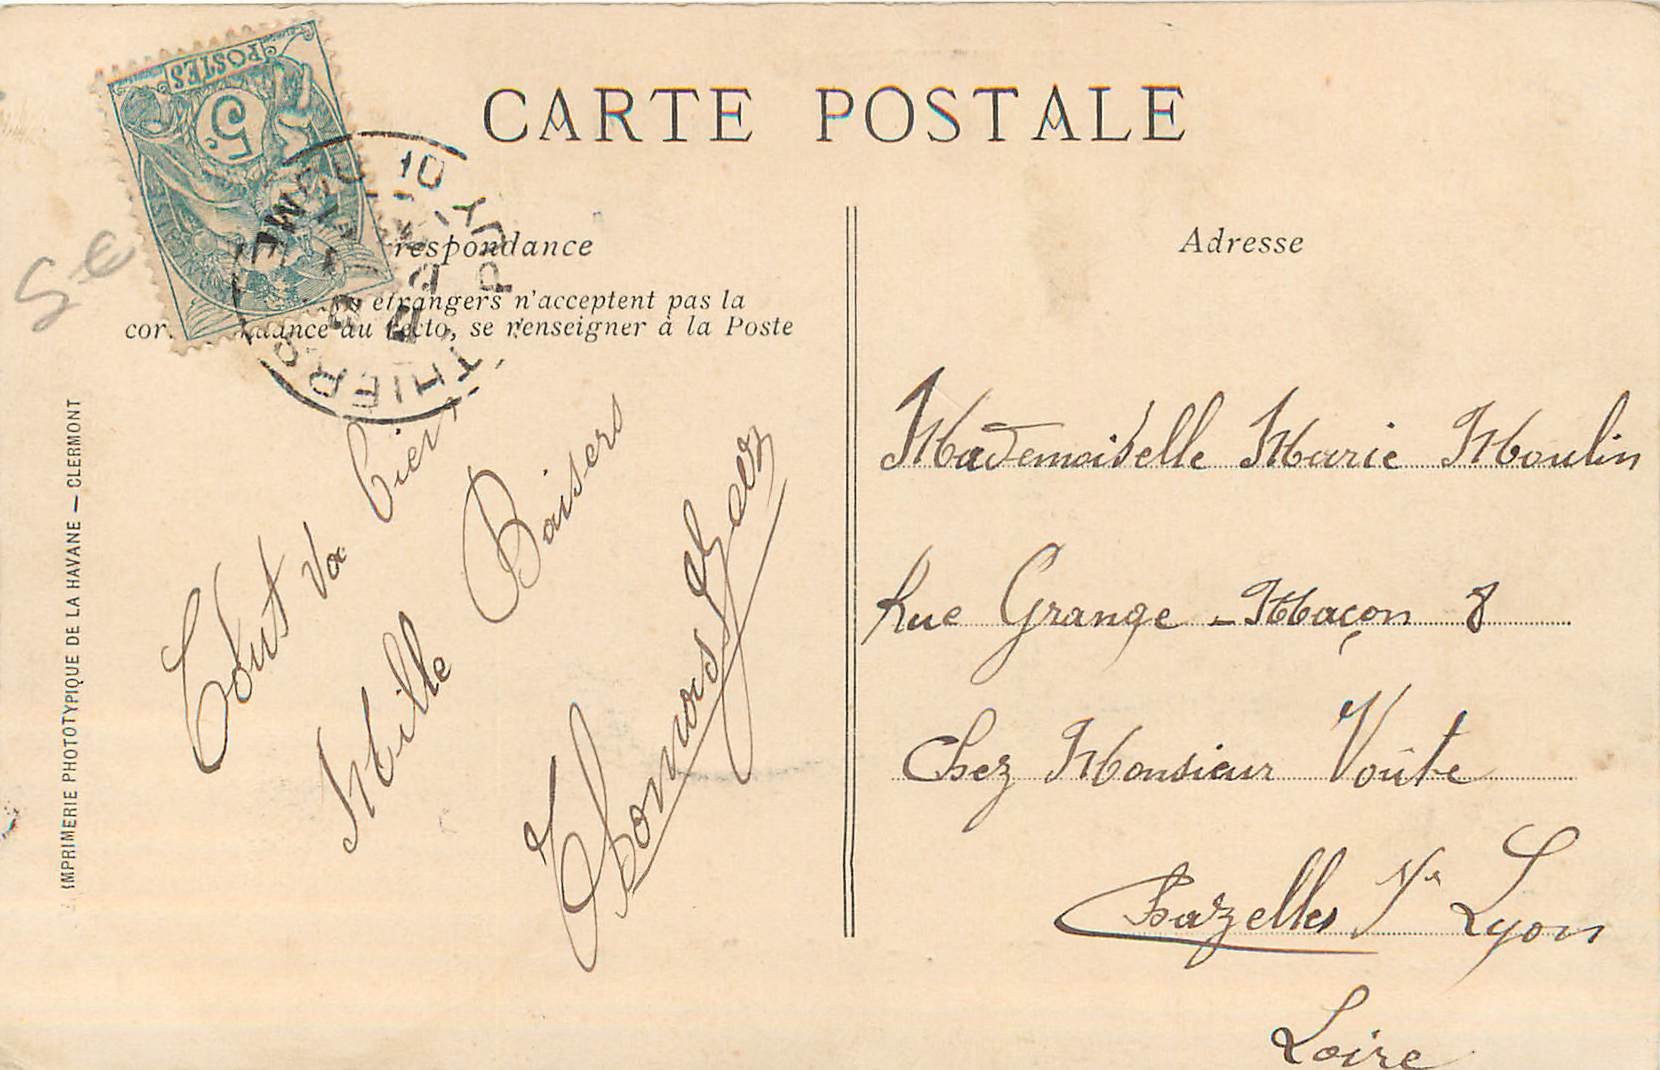 CARTE POSTALE
POSTES
5c
THIERS
PUY-DE-DOME
10
5 €
respondance
étrangers n'acceptent pas la
au recto, se renseigner à la Poste
IMPRIMERIE PHOTOTYPIQUE DE LA HAVANE — CLERMONT
Tout va bien
Mille Baisers
Adresse
Mademoiselle Marie Moulin
Rue Grange-Maçon 8
Chez Monsieur Voûte
Chazelles s/r Lyon
Loire